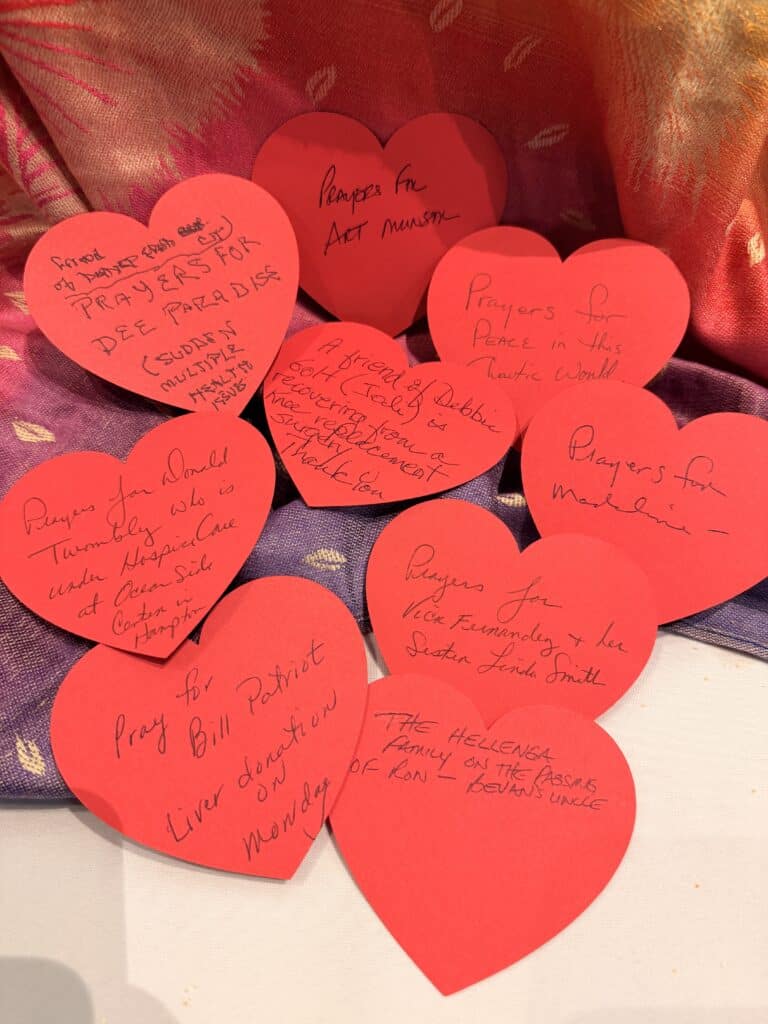 PRAYERS FOR
ART MUNSON
friend
of
CT)
PRAYERS FOR
DEE PARADISE
(SUDDEN
MULTIPLE
HEALTH
ISSUES
Prayers for
PEACE in this
Chaotic World
A friend of Debbie
OOH (Jodi) is
recovering from a
knee replacement
surgery
Thank you
Prayers for
Madeline —
Prayers for Donald
Twombly who is
under Hospice Care
at Ocean Side
Center in
Hampton
Prayers for
Vick Fernandez + her
Sister Linda Smith
Pray for
Bill Patriot
Liver donation
on
Monday
THE HELLENGA
FAMILY ON THE PASSING
OF RON — BEVAN'S UNCLE